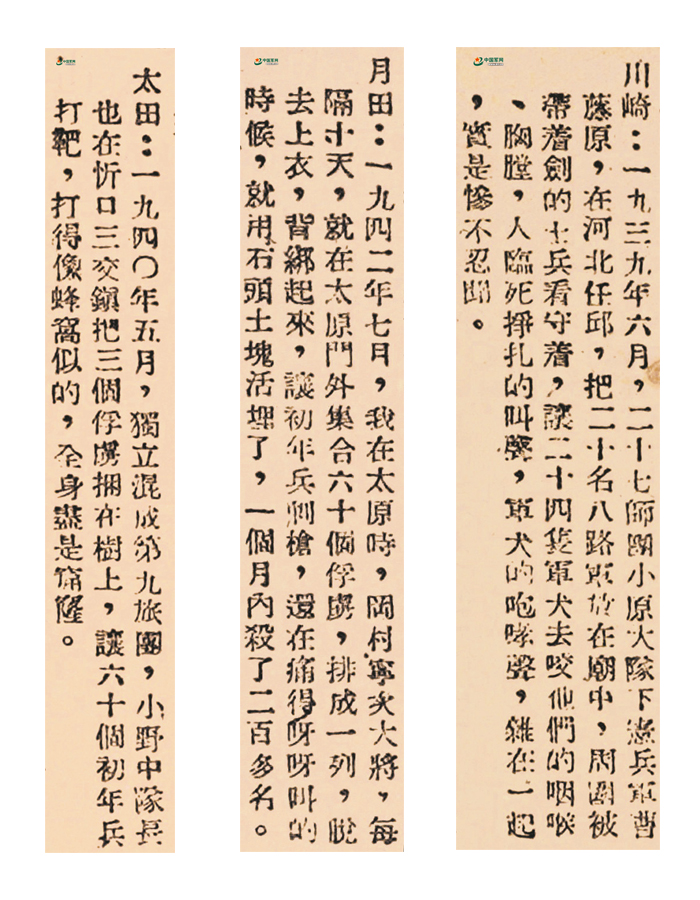 中国军网
川崎：一九三九年六月，二十七師團小原大隊下憲兵軍曹
藤原，在河北任邱，把二十名八路軍放在廟中，周圍被
帶着劍的士兵看守着，讓二十四隻軍犬去咬他們的咽喉
、胸膛，人臨死掙扎的叫聲，軍犬的咆哮聲，雜在一起
，實是慘不忍聞。
中国军网
月田：一九四二年七月，我在太原時，岡村寧次大將，每
隔十天，就在太原門外集合六十個俘虜，排成一列，脫
去上衣，背綁起來，讓初年兵刺槍，還在痛得呀呀叫的
時候，就用石頭土塊活埋了，一個月內殺了二百多名。
中国军网
太田：一九四〇年五月，獨立混成第九旅團，小野中隊長
也在忻口三交鎮把三個俘虜捆在樹上，讓六十個初年兵
打靶，打得像蜂窩似的，全身盡是窟窿。